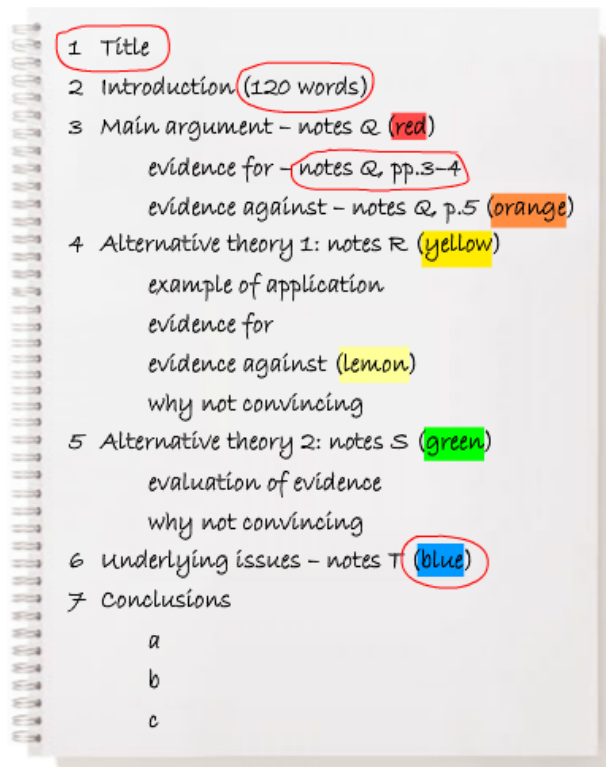 1 Title
2 Introduction (120 words)
3 Main argument – notes Q (red)
evidence for – notes Q, pp.3–4
evidence against – notes Q, p.5 (orange)
4 Alternative theory 1: notes R (yellow)
example of application
evidence for
evidence against (lemon)
why not convincing
5 Alternative theory 2: notes S (green)
evaluation of evidence
why not convincing
6 Underlying issues – notes T (blue)
7 Conclusions
a
b
c